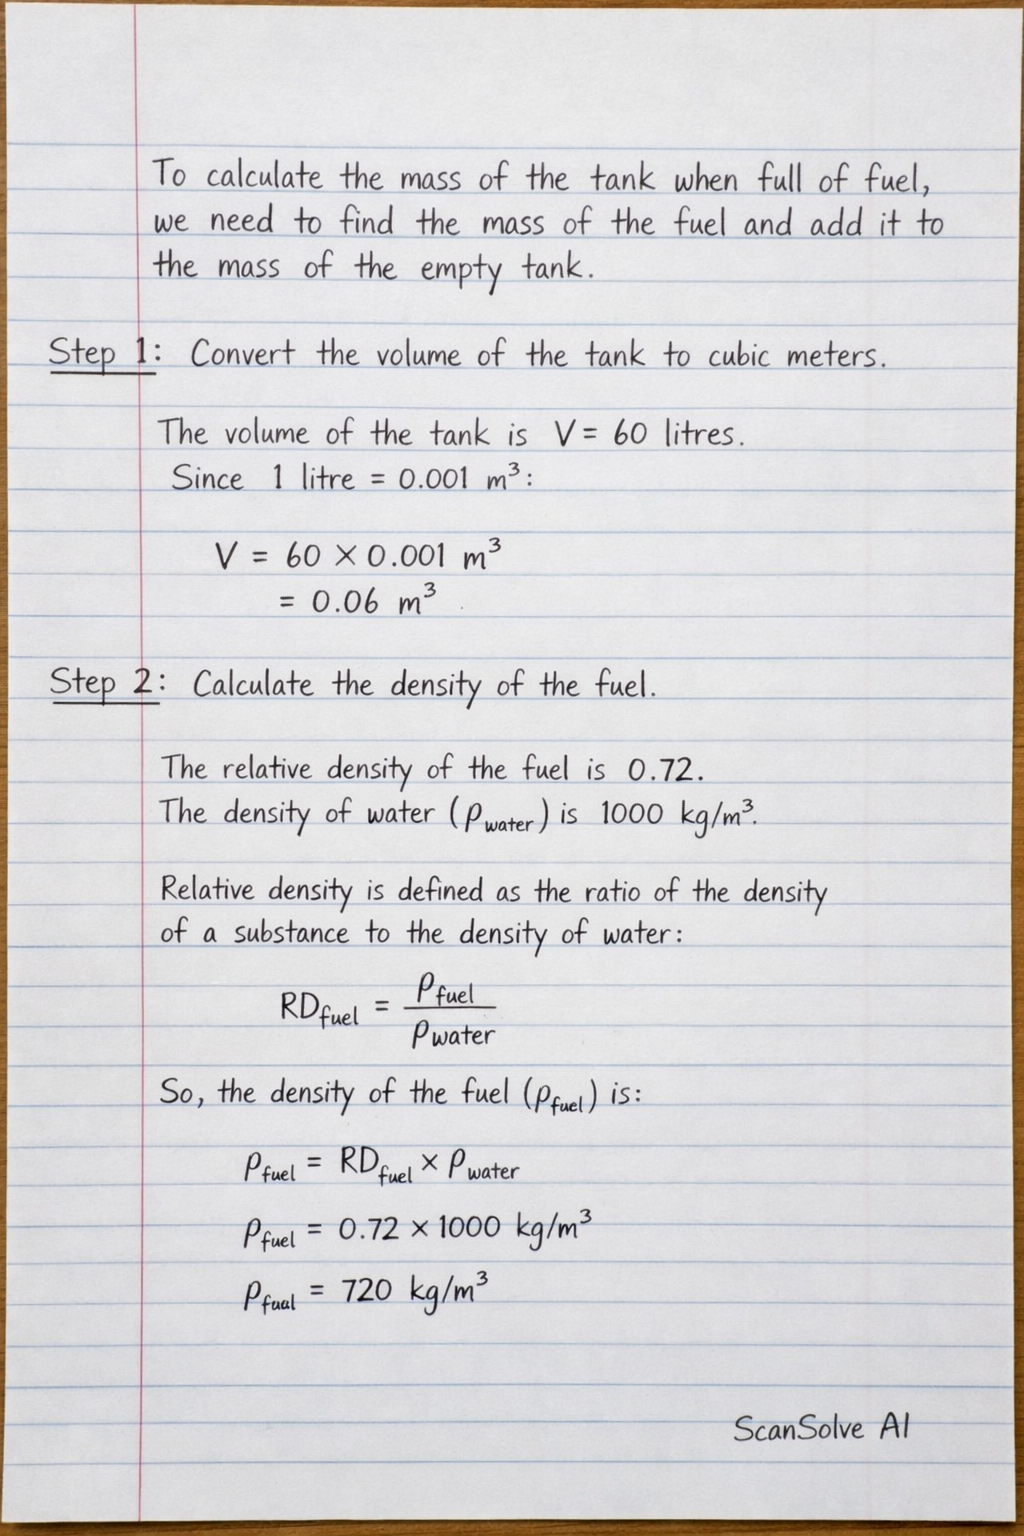 To calculate the mass of the tank when full of fuel,
we need to find the mass of the fuel and add it to
the mass of the empty tank.
Step 1: Convert the volume of the tank to cubic meters.
The volume of the tank is V = 60 litres.
Since 1 litre = 0.001 m³:
V = 60 × 0.001 m³
= 0.06 m³
Step 2: Calculate the density of the fuel.
The relative density of the fuel is 0.72.
The density of water (ρwater) is 1000 kg/m³.
Relative density is defined as the ratio of the density
of a substance to the density of water:
RDfuel = ρfuel / ρwater
So, the density of the fuel (ρfuel) is:
ρfuel = RDfuel × ρwater
ρfuel = 0.72 × 1000 kg/m³
ρfual = 720 kg/m³
ScanSolve AI